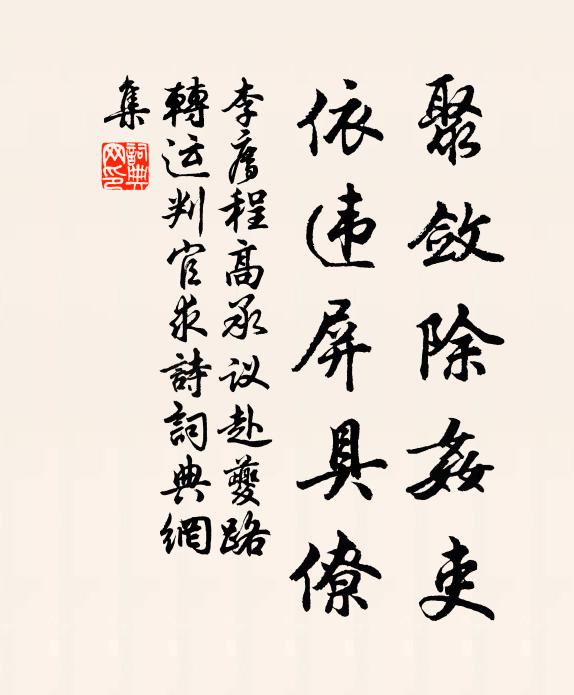 聚斂除姦吏
依违屏具僚
李廌程高承议赴夔路
轉运判官求詩詞典網
集
詞典网印